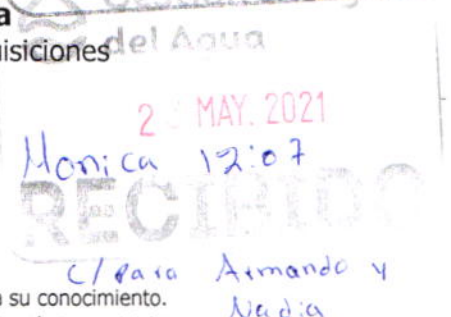 a
uisiciones
del Agua
2 MAY. 2021
Monica 12:07
RECIBIDO
c/para Armando y
a su conocimiento.
Nadia